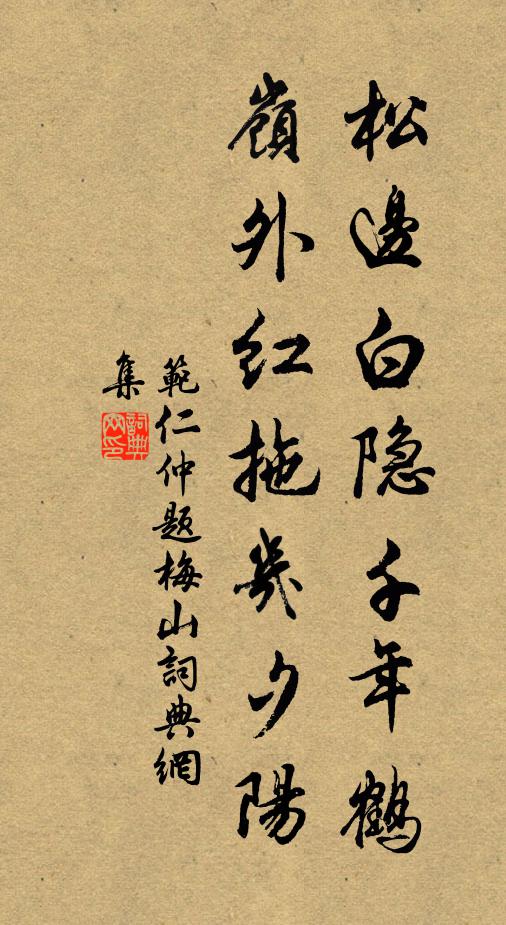 松邊白隐千年鶴
嶺外紅拖幾夕陽
範仁仲題梅山詞典網
集
詞典
网印